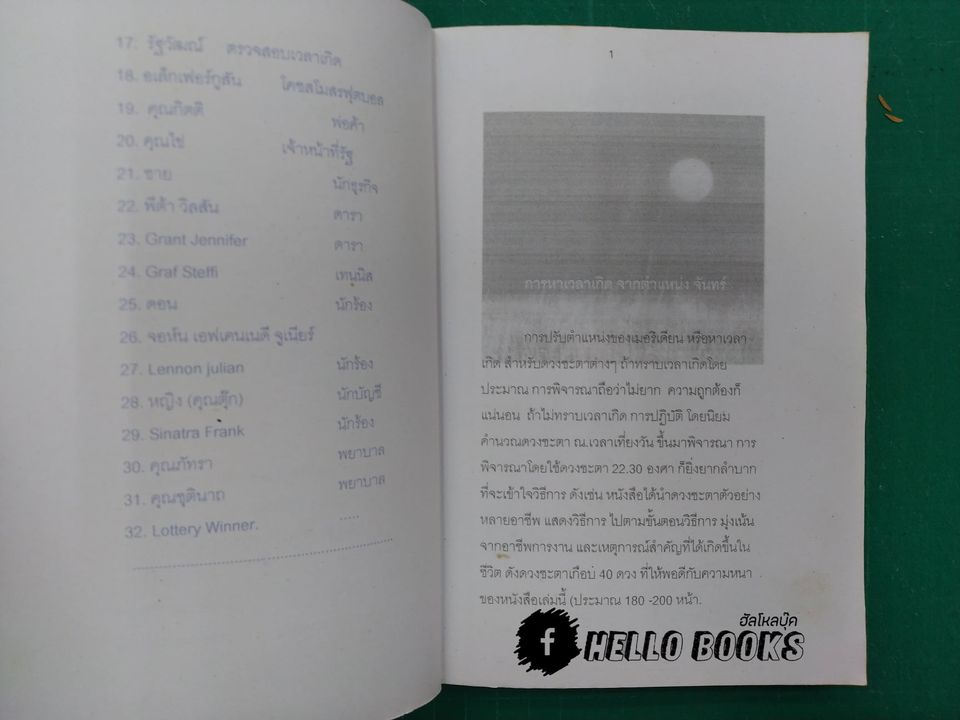 17. รัฐวัฒณ์ ตรวจสอบเวลาเกิด
18. อเล็กเฟอร์กูสัน โคชสโมสรฟุตบอล
19. คุณกิตติ พ่อค้า
20. คุณไข่ เจ้าหน้าที่รัฐ
21. ชาย นักธุรกิจ
22. พีต้า วิลสัน ดารา
23. Grant Jennifer ดารา
24. Graf Steffi เทนนิส
25. ดอน นักร้อง
26. จอห์น เอฟเคนเนดี จูเนียร์
27. Lennon julian นักร้อง
28. หญิง (คุณตุ๊ก) นักบัญชี
29. Sinatra Frank นักร้อง
30. คุณภัทรา พยาบาล
31. คุณชุตินาถ พยาบาล
32. Lottery Winner. .....
1
การหาเวลาเกิด จากตำแหน่ง จันทร์
การปรับตำแหน่งของเมอริเดียน หรือหาเวลา
เกิด สำหรับดวงชะตาต่างๆ ถ้าทราบเวลาเกิดโดย
ประมาณ การพิจารณาถือว่าไม่ยาก ความถูกต้องก็
แน่นอน ถ้าไม่ทราบเวลาเกิด การปฏิบัติ โดยนิยม
คำนวณดวงชะตา ณ.เวลาเที่ยงวัน ขึ้นมาพิจารณา การ
พิจารณาโดยใช้ดวงชะตา 22.30 องศา ก็ยิ่งยากลำบาก
ที่จะเข้าใจวิธีการ ดังเช่น หนังสือได้นำดวงชะตาตัวอย่าง
หลายอาชีพ แสดงวิธีการ ไปตามขั้นตอนวิธีการ มุ่งเน้น
จากอาชีพการงาน และเหตุการณ์สำคัญที่ได้เกิดขึ้นใน
ชีวิต ดังดวงชะตาเกือบ 40 ดวง ที่ให้พอดีกับความหนา
ของหนังสือเล่มนี้ (ประมาณ 180 -200 หน้า.
ฮัลโหลบุ๊ค
f HELLO BOOKS